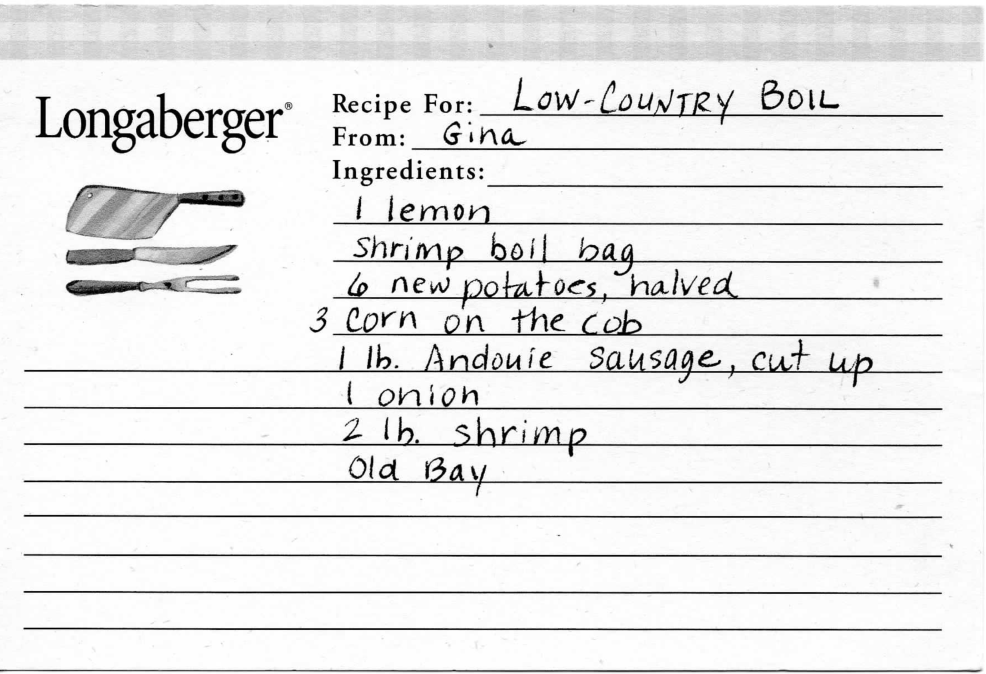 Longaberger®
Recipe For: LOW-COUNTRY BOIL
From: Gina
Ingredients:
1 lemon
Shrimp boil bag
6 new potatoes, halved
3 Corn on the cob
1 lb. Andouie sausage, cut up
1 onion
2 lb. shrimp
Old Bay